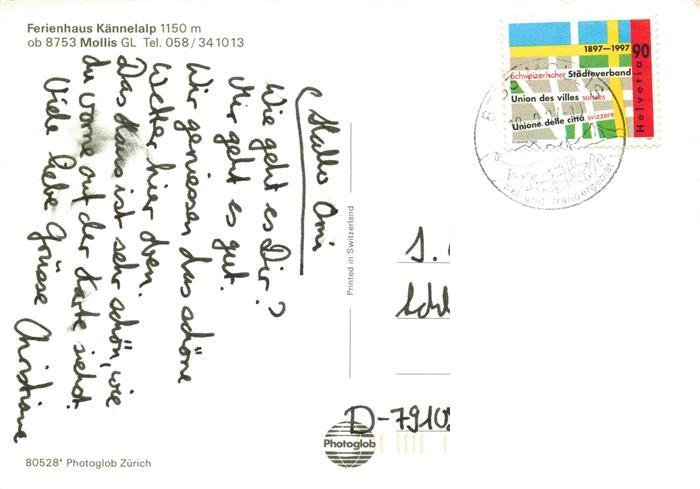 Ferienhaus Kännelalp 1150 m
ob 8753 Mollis GL Tel. 058/341013
Hallo Omi
Wie geht es Dir?
Mir geht es gut.
Wir geniessen das schöne
Wetter hier oben.
Das Haus ist sehr schön, wie
du vorne auf der Karte siehst.
Viele liebe Grüsse Christiane
Printed in Switzerland
1897–1997
90
Schweizerischer Städteverband
Union des villes suisses
Unione delle città svizzere
Helvetia
Ski und Wandergebiet
D-7910
Photoglob
80528* Photoglob Zürich